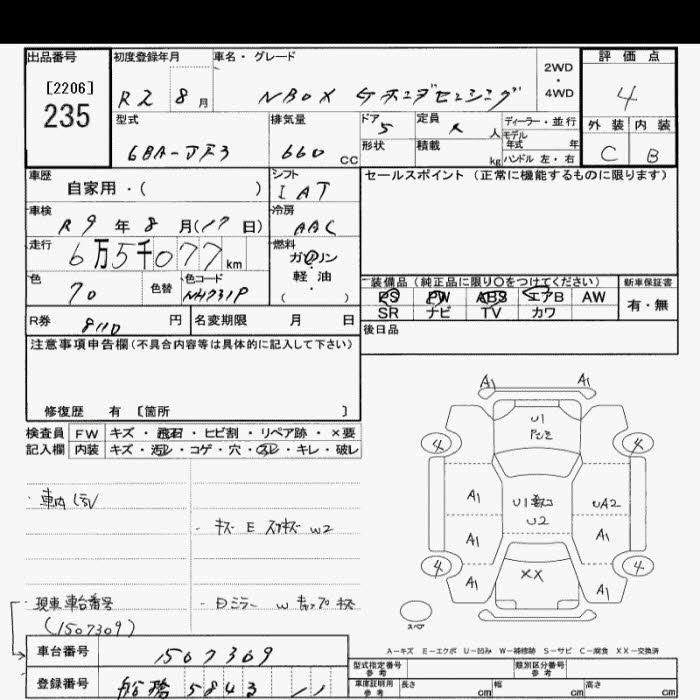 出品番号 初度登録年月 車名・グレード 評価点
[2206]
235
R2 8月 NBOX ゲホンダセンシング 2WD・4WD 4
型式 排気量 ドア 定員 ディーラー・並行 外装 内装
6BA-JF3 660 CC 5 人 モデル年式 年 C B
形状 積載 kg ハンドル 左・右
車歴 シフト セールスポイント (正常に機能するものに限ります)
自家用・( ) IAT
車検 冷房
R9年8月(17日) AAC
走行 燃料
6万5千077km ガソリン・軽油
( )
色 色替 色コード
70 NH731P
装備品 (純正品に限り〇をつけてください) 新車保証書
PS PW ABS エアB AW 有・無
SR ナビ TV カワ
R券 8110 円 名変期限 月 日 後日品
注意事項申告欄(不具合内容等は具体的に記入して下さい)
修復歴 有 [箇所 ]
検査員 FW キズ・飛石・ヒビ割・リペア跡・×要
記入欄 内装 キズ・汚レ・コゲ・穴・スレ・キレ・破レ
A1 A1
U1
4 4
A1 U1 U2 UA2
A1 A1
4 XX 4
A1 A1
スペア
・車内
・キズ E スリキズ W2
・現車車台番号
(1507309)
・Dミラー W キャップ キズ
A-キズ E-エクボ U-凹み W-補修跡 S-サビ C-腐食 XX-交換済
車台番号 1507309
登録番号 船橋 5843
型式指定番号 参考 類別区分番号 参考
車庫証明用 参考 長さ cm 幅 cm 高さ cm